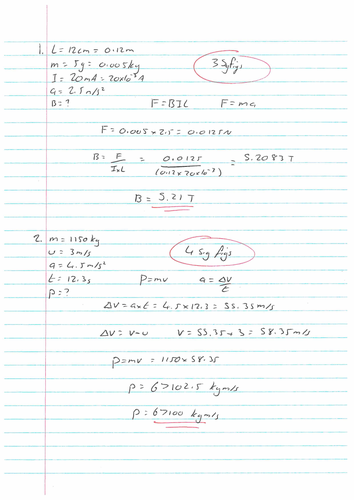 1. L = 12cm = 0.12m
m = 5g = 0.005kg
3 Sgfigs
I = 20mA = 20x10⁻³A
a = 2.5m/s²
B = ? F = BIL F = ma
F = 0.005 x 2.5 = 0.0125N
B = F/IxL = 0.0125/(0.12x20x10⁻³) = 5.2083T
B = 5.21 T
2. m = 1150kg
u = 3m/s
4 sig figs
a = 4.5m/s²
t = 12.3s p = mv a = ΔV/t
p = ?
ΔV = axt = 4.5x12.3 = 55.35m/s
ΔV = V-u V = 55.35+3 = 58.35m/s
p = mv = 1150x58.35
p = 67102.5 kgm/s
p = 67100 kgm/s